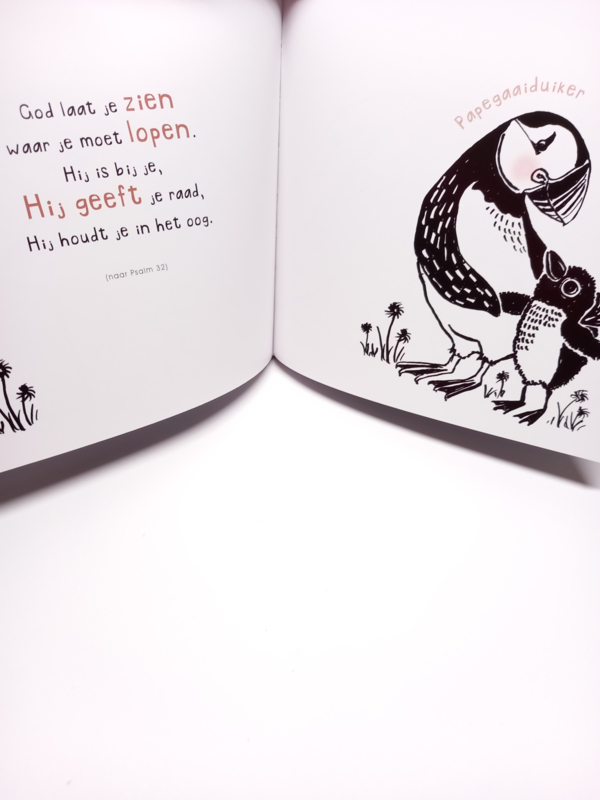 God laat je zien
waar je moet lopen.
Hij is bij je,
Hij geeft je raad,
Hij houdt je in het oog.
(naar Psalm 32)
Papegaaiduiker